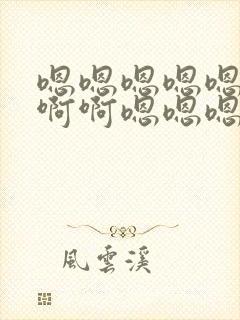 嗯嗯嗯嗯嗯
啊啊嗯嗯嗯
風雲溪